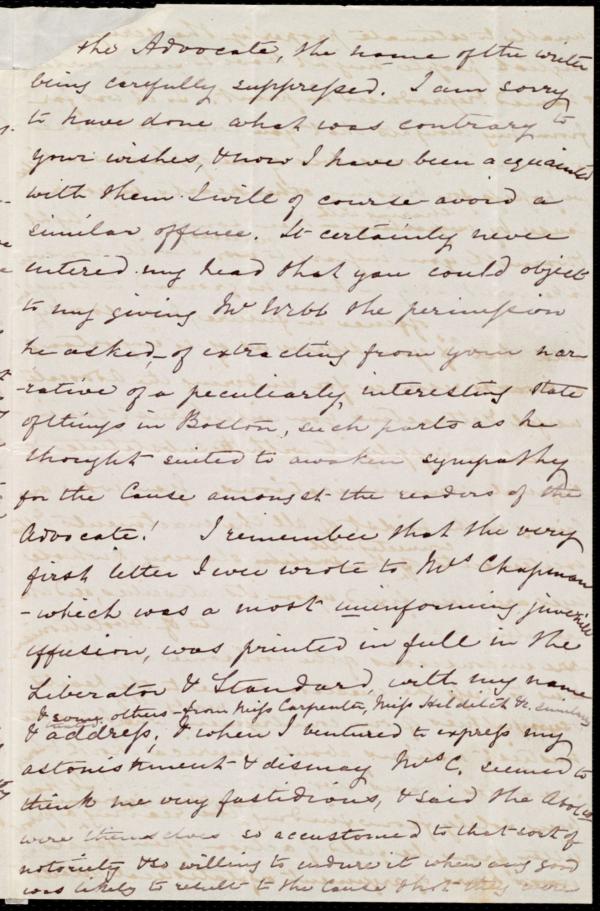 the Advocate, the name of the writer
being carefully suppressed. I am sorry
to have done what was contrary to
your wishes, & now I have been acquainted
with them I will of course avoid a
similar offence. It certainly never
entered my head that you could object
to my giving Mr Webb the permission
he asked, – of extracting from your nar-
-rative of a peculiarly interesting state
of things in Boston, such parts as he
thought suited to awaken sympathy
for the Cause amongst the readers of the
Advocate! I remember that the very
first letter I ever wrote to Mrs Chapman
- which was a most uninforming juvenile
effusion, was printed in full in the
Liberator & Standard, with my name
& some others – from Miss Carpenter, Miss Hilditch &c. similarly
& address; & when I ventured to express my
astonishment & dismay Mrs C. seemed to
think me very fastidious, & said the Abolts
were themselves so accustomed to that sort of
notoriety & so willing to endure it when any good
was likely to result to the Cause that they were